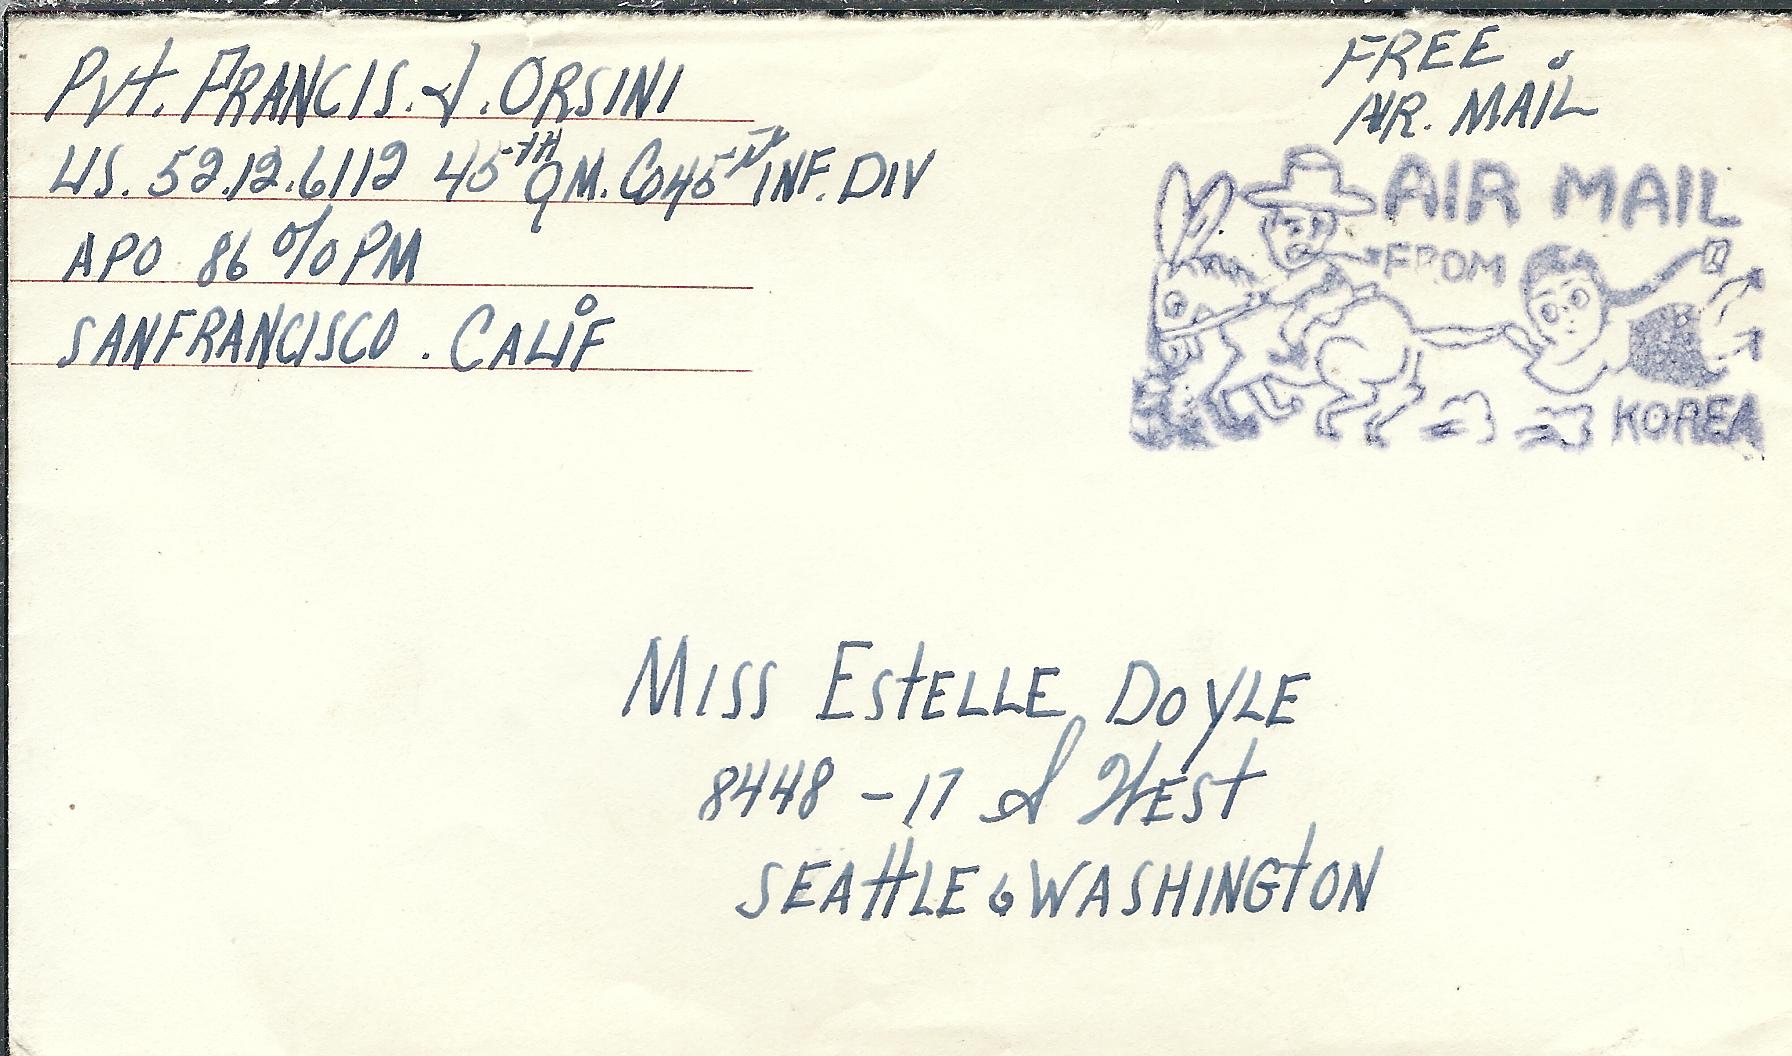 Pvt. FRANCIS. J. ORSINI
US. 52.12.6112 45TH QM. Co 45TH INF. DIV
APO 86 % PM
SANFRANCISCO. CALIF
FREE
AIR. MAIL
AIR MAIL
FROM
KOREA
MISS EStELLE DOYLE
8448 - 17 WESt
SEAttLE, WASHINGtON